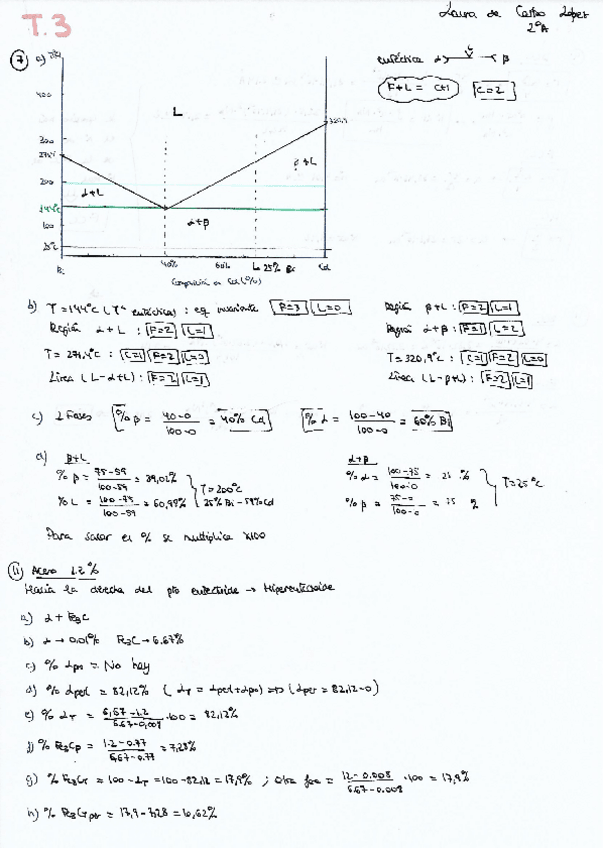 T.3
Laura de Castro López
2ºA
7 a)
eutéctica α β
F+L = C+1 C=2
400
L
320,9
300
β+L
200
α+L
144ºC
α+β
100
25ºC
Bi 40% 60% L 25% Bi Cd
Composición en Cd (%)
b) T=144ºC (Tª eutéctica) : eq. invariante F=3 L=0 Región β+L : F=2 L=1
Región α+L : F=2 L=1
T=320,9ºC : C=1 F=2 L=0
Línea (L-α+L) : F=2 L=1 Línea (L-β+L) : F=2 L=1
c) 2 Fases % β = 40-0 / 100-0 = 40% Cd % α = 100-40 / 100-0 = 60% Bi
d) β+L α+β
% β = 75-59 / 100-59 = 39,02%
% L = 100-75 / 100-59 = 60,98% T=200ºC 25% Bi - 59% Cd
% α = 100-75 / 100-0 = 25 %
% β = 75-0 / 100-0 = 75 % T=25ºC
Para sacar el % se multiplica x100
11 Acero 1.2%
Hacia la derecha del pto eutectoide → Hipereutectoide
a) α + Fe3C
b) α → 0.01% Fe3C → 6.67%
c) % αpr = No hay
d) % αperl = 82,12%
e) % αT = 6,67-1.2 / 6.67-0,008 ·100 = 82,12%
f) % Fe3Cp = 1.2-0.77 / 6,67-0.77 = 7,28%
g) % Fe3CT = 100-αT = 100-82,12 = 17,9% ; Otra for = 1.2-0.008 / 6.67-0.008 ·100 = 17,9%
h) % Fe3C per = 17,9-7,28 = 10,62%